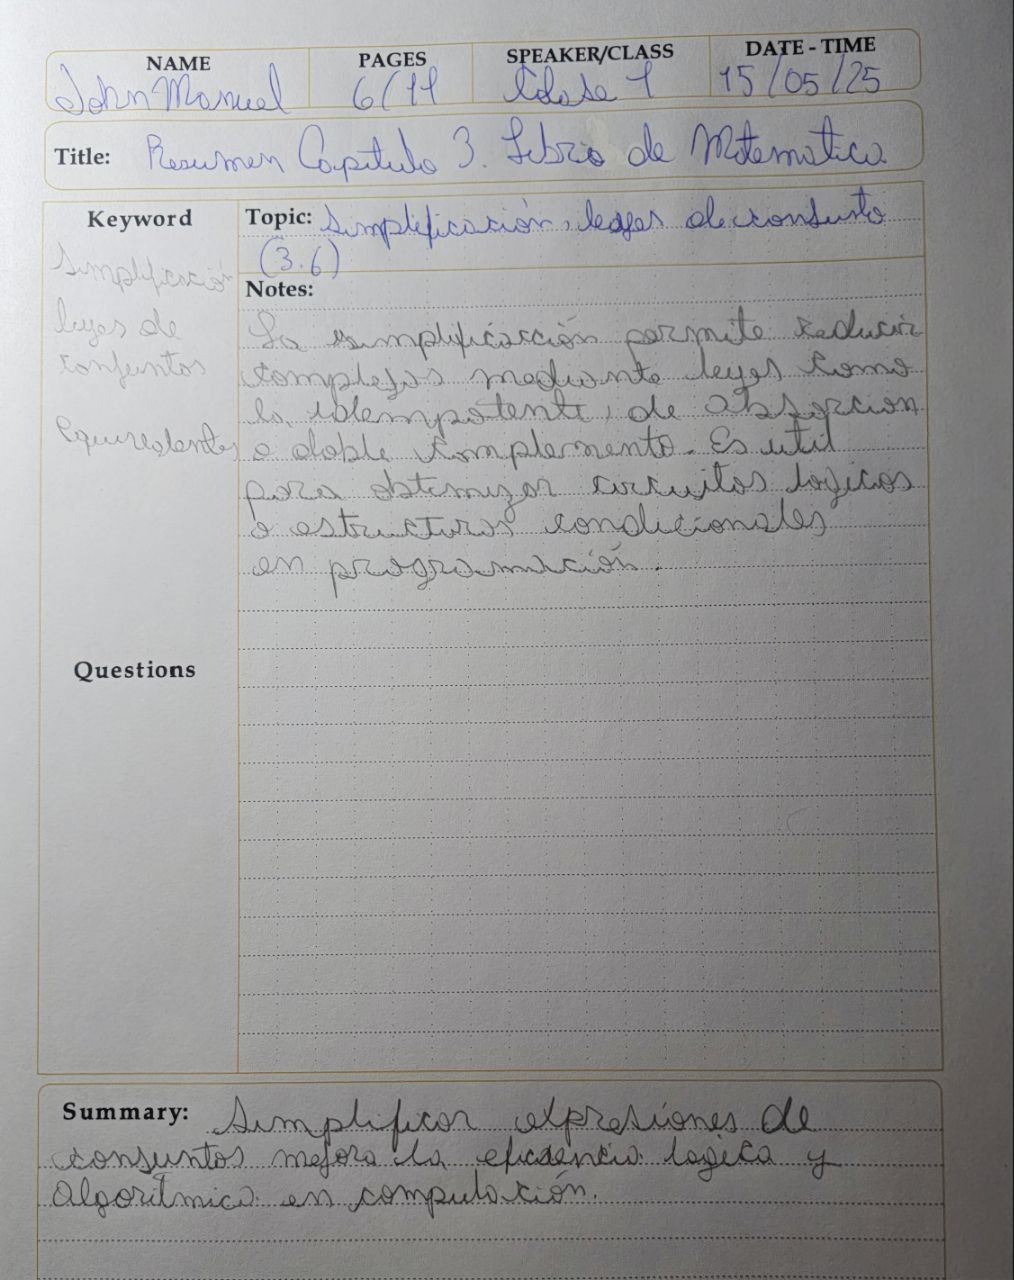 NAME PAGES SPEAKER/CLASS DATE - TIME
John Manuel 6/11 Clase 1 15/05/25
Title: Resumen Capitulo 3. Libro de Matematica
Keyword
Simplificación
leyes de
conjuntos
Equivalentes
Questions
Topic: Simplificación, leyes de conjunto
(3.6)
Notes:
La simplificación permite reducir
complejas mediante leyes como
la idempotente, de absorcion
o doble complemento. Es util
para obtimizar circuitos logicos
o estructuras condicionales
en programación.
Summary: Simplificar expresiónes de
conjuntos mejora la eficiencia logica y
algorítmica en computación.